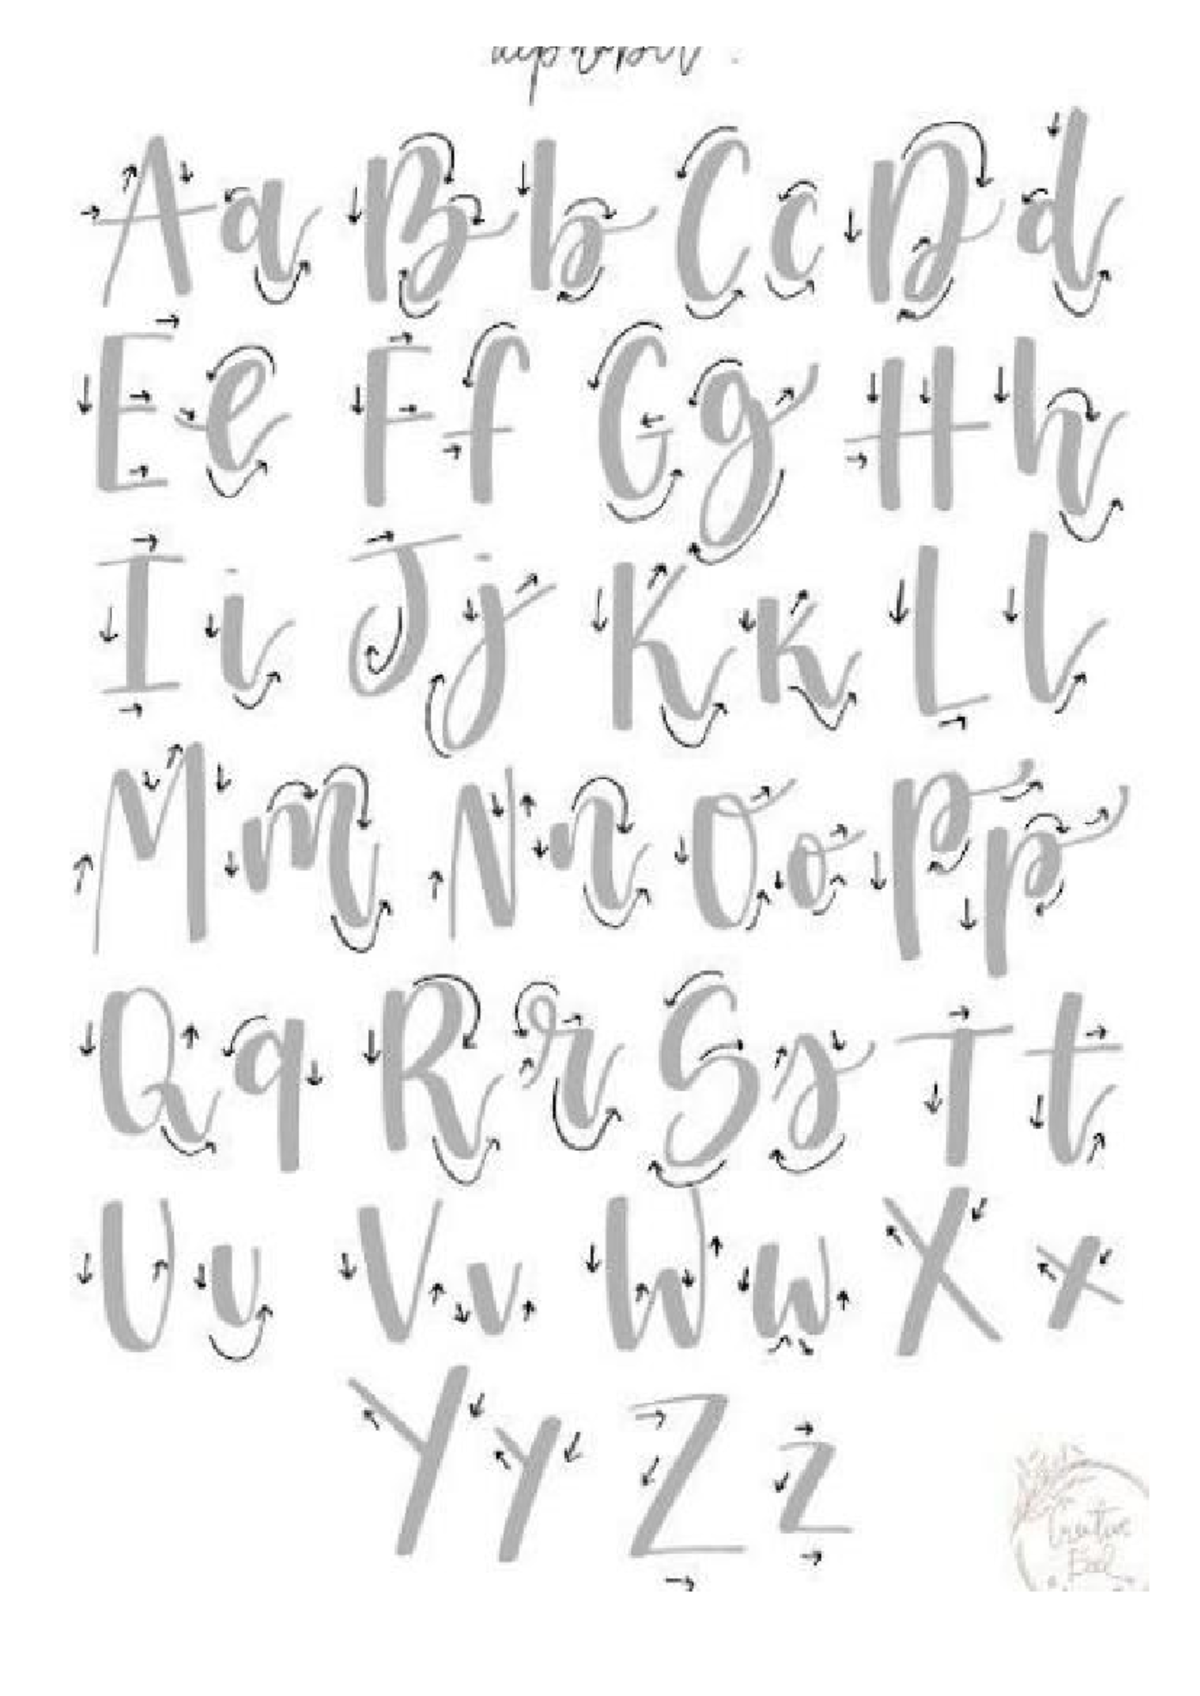 Aa Bb Cc Dd
Ee Ff Gg Hh
Ii Jj Kk Ll
Mm Nn Oo Pp
Qq Rr Ss Tt
Uu Vv Ww Xx
Yy Zz
Creative